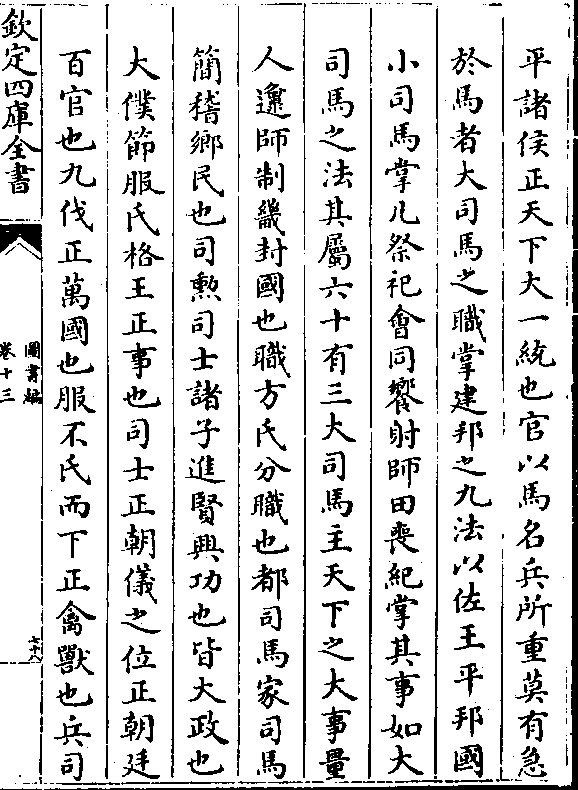 平諸侯正天下大一統也官以馬名兵所重莫有急
於馬者大司馬之職掌建邦之九法以佐王平邦國
小司馬掌凡祭祀會同饗射師田喪紀掌其事如大
司馬之法其屬六十有三大司馬主天下之大事量
人邍師制畿封國也職方氏分職也都司馬家司馬
簡稽鄉民也司勲司士諸子進賢興功也皆大政也
大僕節服氏格王正事也司士正朝儀之位正朝廷
百官也九伐正萬國也服不氏而下正禽獸也兵司
欽定四庫全書
圖書編
卷十三
七十八